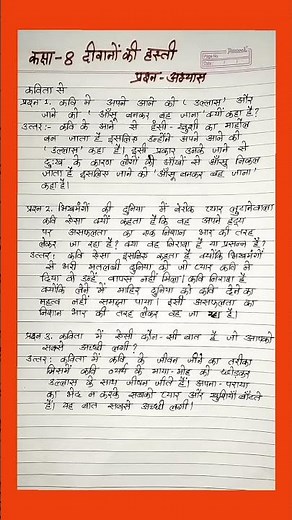 कक्षा-8 दीवानों की हस्ती
प्रश्न-अभ्यास
कविता से
प्रश्न 1. कवि ने अपने आने को 'उल्लास' और
जाने को 'आँसू बनकर बह जाना' क्यों कहा है?
उत्तर:- कवि के आने से हँसी-खुशी का माहौल
बन जाता है इसलिए उन्होंने अपने आने को
'उल्लास' कहा है। इसी प्रकार उनके जाने से
दुःख के कारण लोगों की आँखों से आँसू निकल
जाता है इसलिए जाने को 'आँसू बनकर बह जाना'
कहा है।
प्रश्न 2. भिखमंगों की दुनिया में बेरोक प्यार लुटानेवाला
कवि ऐसा क्यों कहता है कि वह अपने हृदय
पर असफलता का एक निशान भार की तरह
लेकर जा रहा है? क्या वह निराश है या प्रसन्न है?
उत्तर: कवि ऐसा इसलिए कहता है क्योंकि भिखमंगों
से भरी मतलबी दुनिया को जो प्यार कवि ने
दिया वो उन्हें वापस नहीं मिला। कवि निराश है
क्योंकि लेने में माहिर दुनिया को कवि देने का
महत्व नहीं समझा पाया। इसी असफलता का
निशान भार की तरह लेकर वह जा रहा है।
प्रश्न 3. कविता में ऐसी कौन-सी बात है जो आपको
सबसे अच्छी लगी?
उत्तर: कविता में कवि के जीवन जीने का तरीका
जिसमें कवि व्यर्थ के माया-मोह को छोड़कर
उल्लास के साथ जीवन जीते हैं। अपना-पराया
का भेद न करके सबको प्यार और खुशियाँ बाँटते
हैं। यह बात सबसे अच्छी लगी।